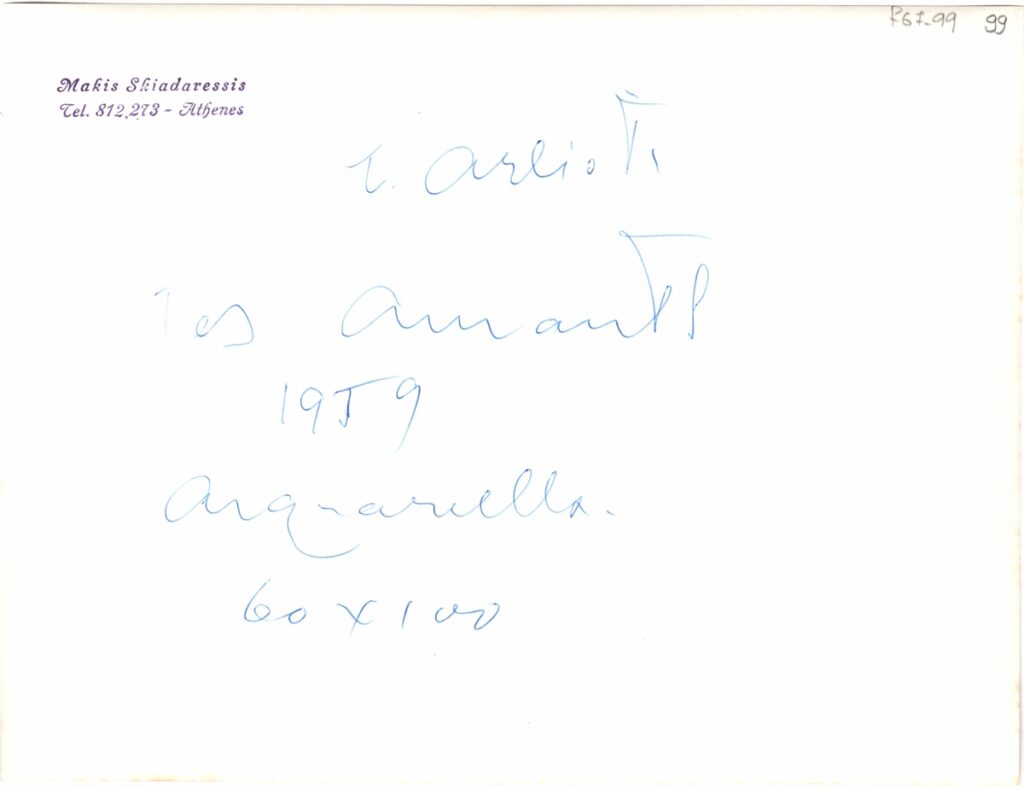 F67-99 99
Makis Skiadaressis
Tel. 812,273 - Athenes
E. Arlioti
Les Amants
1959
Acquarella.
60 x 100